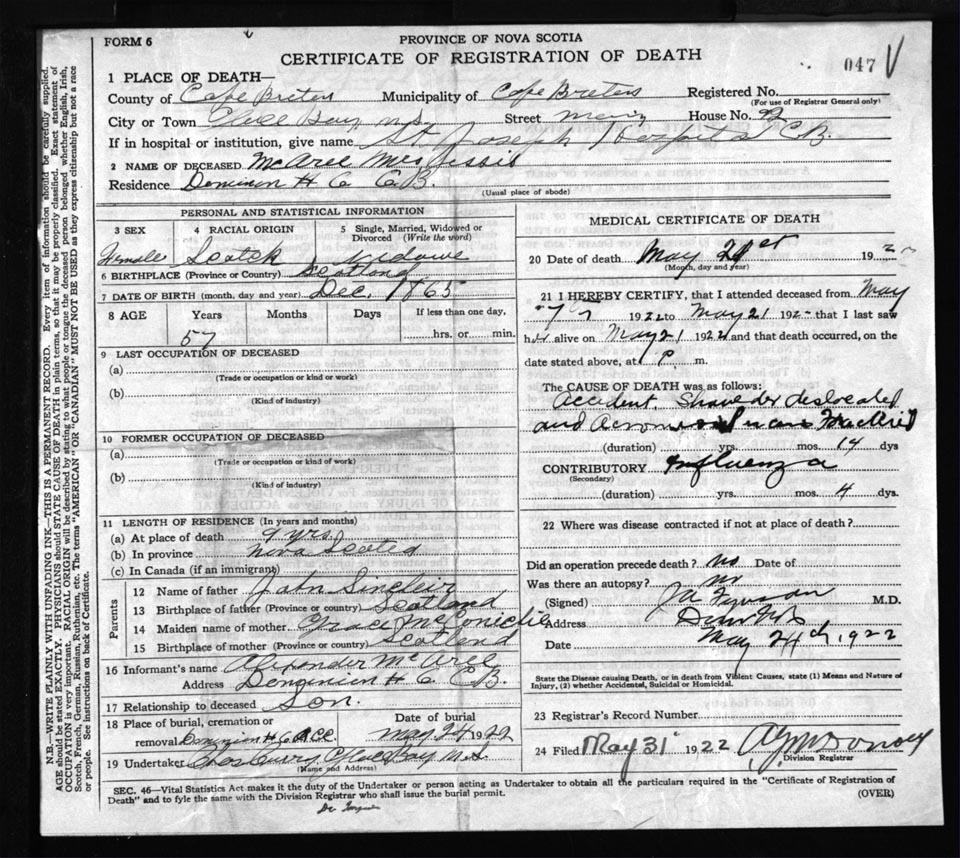 FORM 6
PROVINCE OF NOVA SCOTIA
CERTIFICATE OF REGISTRATION OF DEATH
047
1 PLACE OF DEATH—
County of Cape Breton Municipality of Cape Breton Registered No.
(For use of Registrar General only)
City or Town Glace Bay, N.S. Street House No.
If in hospital or institution, give name St Joseph Hospital C.B.
2 NAME OF DECEASED McAree Mrs Jessie
Residence Dominion C.B.
(Usual place of abode)
PERSONAL AND STATISTICAL INFORMATION
3 SEX 4 RACIAL ORIGIN 5 Single, Married, Widowed or Divorced (Write the word)
Female Scotch Widowe
6 BIRTHPLACE (Province or Country) Scotland
7 DATE OF BIRTH (month, day and year) Dec, 1865
8 AGE Years Months Days If less than one day,
57 hrs. or min.
9 LAST OCCUPATION OF DECEASED
(a)
(Trade or occupation or kind or work)
(b)
(Kind of industry)
10 FORMER OCCUPATION OF DECEASED
(a)
(Trade or occupation or kind of work)
(b)
(Kind of industry)
11 LENGTH OF RESIDENCE (In years and months)
(a) At place of death 9 yrs.
(b) In province Nova Scotia
(c) In Canada (if an immigrant)
Parents
12 Name of father John Sincleir
13 Birthplace of father (Province or country) Scotland
14 Maiden name of mother Grace McConichie
15 Birthplace of mother (Province or country) Scotland
16 Informant's name Alexander McAree
Address Dominion C.B.
17 Relationship to deceased Son.
18 Place of burial, cremation or Date of burial
removal Dominion May 24 1922
19 Undertaker Glace Bay N.S.
(Name and Address)
MEDICAL CERTIFICATE OF DEATH
20 Date of death May 21st 192
(Month, day and year)
21 I HEREBY CERTIFY, that I attended deceased from May
7 1922 to May 21 192 that I last saw
h alive on May 21 1922 and that death occurred, on
date stated above, at m.
The CAUSE OF DEATH was as follows:
Accident, Shoulder deslocated
and fractured
(duration) yrs. mos. 14 dys
CONTRIBUTORY Influenza
(Secondary)
(duration) yrs. mos. 4 dys.
22 Where was disease contracted if not at place of death?
Did an operation precede death? No Date of
Was there an autopsy? no
(Signed) M.D.
Address
Date May 24th 1922
State the Disease causing Death, or in death from Violent Causes, state (1) Means and Nature of
Injury, (2) whether Accidental, Suicidal or Homicidal.
23 Registrar's Record Number
24 Filed May 31 1922
Division Registrar
SEC. 46—Vital Statistics Act makes it the duty of the Undertaker or person acting as Undertaker to obtain all the particulars required in the "Certificate of Registration of
Death" and to fyle the same with the Division Registrar who shall issue the burial permit.
(OVER)
N.B.—WRITE PLAINLY WITH UNFADING INK—THIS IS A PERMANENT RECORD. Every item of information should be carefully supplied.
AGE should be stated EXACTLY. PHYSICIANS should STATE CAUSE OF DEATH in plain terms, so that it may be properly classified. Exact statement of
OCCUPATION is very important. RACIAL ORIGIN will be described by stating to what people or tongue the deceased person belonged whether English, Irish,
Scotch, French, German, Russian, Ruthenian, etc. The terms "AMERICAN" OR "CANADIAN" MUST NOT BE USED as they express citizenship but not a race
or people. See instructions on back of Certificate.